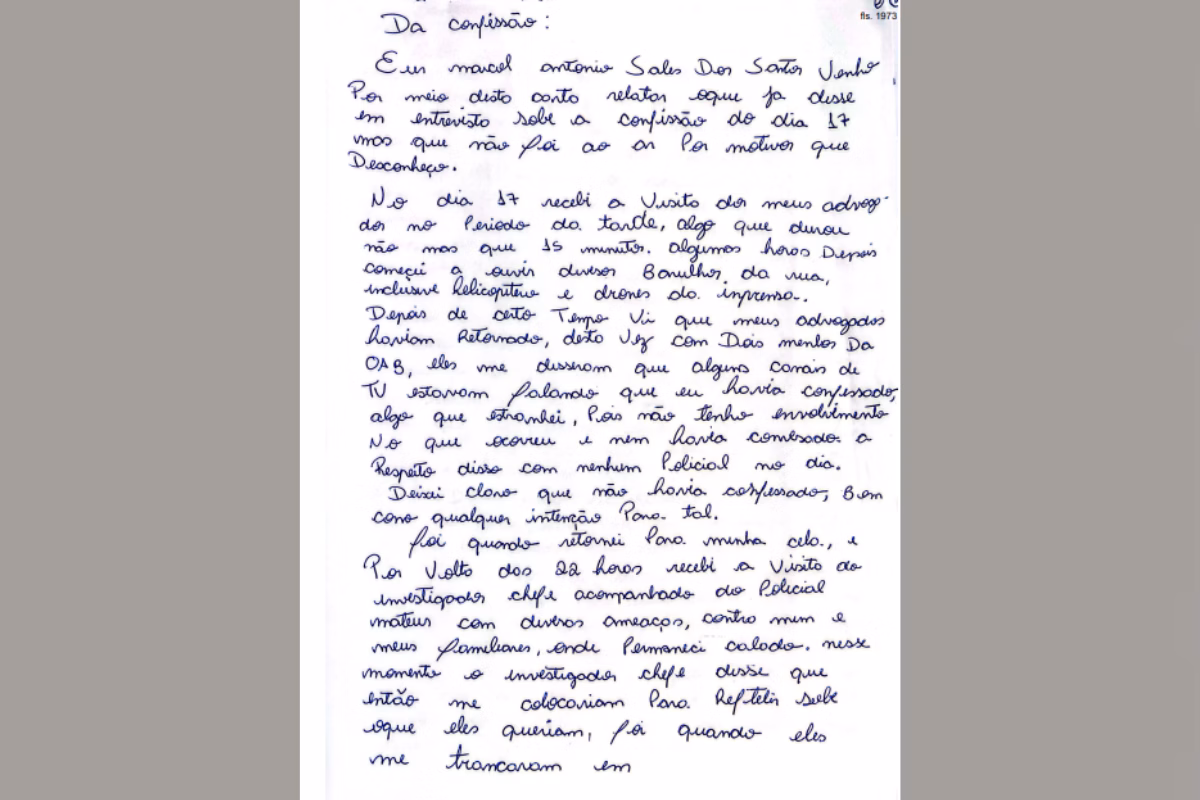 fls. 1973
Da confissão:
Eu marcel antonio Sales Dos Santos Venho
Por meio desta carta relatar oque ja disse
em entrevista sobe a confissão do dia 17
mas que não foi ao ar Por motivos que
Desconheço.
No dia 17 recebi a Visita dos meus advoga-
dos no Periodo da tarde, algo que durou
não mas que 15 minutos. algumas horas Depois
começei a ouvir diversos Barulhos da rua,
inclusive helicoptero e drones da inprensa.
Depois de certo Tempo Vi que meus advogados
haviam Retornado, desta Vez com Dois menbos Da
OAB, eles me disseram que alguns canais de
TV estavam falando que eu havia confessado,
algo que estranhei, Pois não tenho envolvimento
No que ocorreu e nem havia convesado a
Respeito disso com nenhum Policial no dia.
Deixei claro que não havia confessado, Bem
como qualquer intenção Para tal.
foi quando retornei Para minha cela, e
Por Volta das 22 horas recebi a Visita do
investigador chefe acompanhado do Policial
mateus com diversas ameaças, contra mim e
meus familiares, onde Permaneci calado. nesse
momento o investigador chefe disse que
então me colocariam Para Refletir sobe
oque eles queriam, foi quando eles
me trancaram em